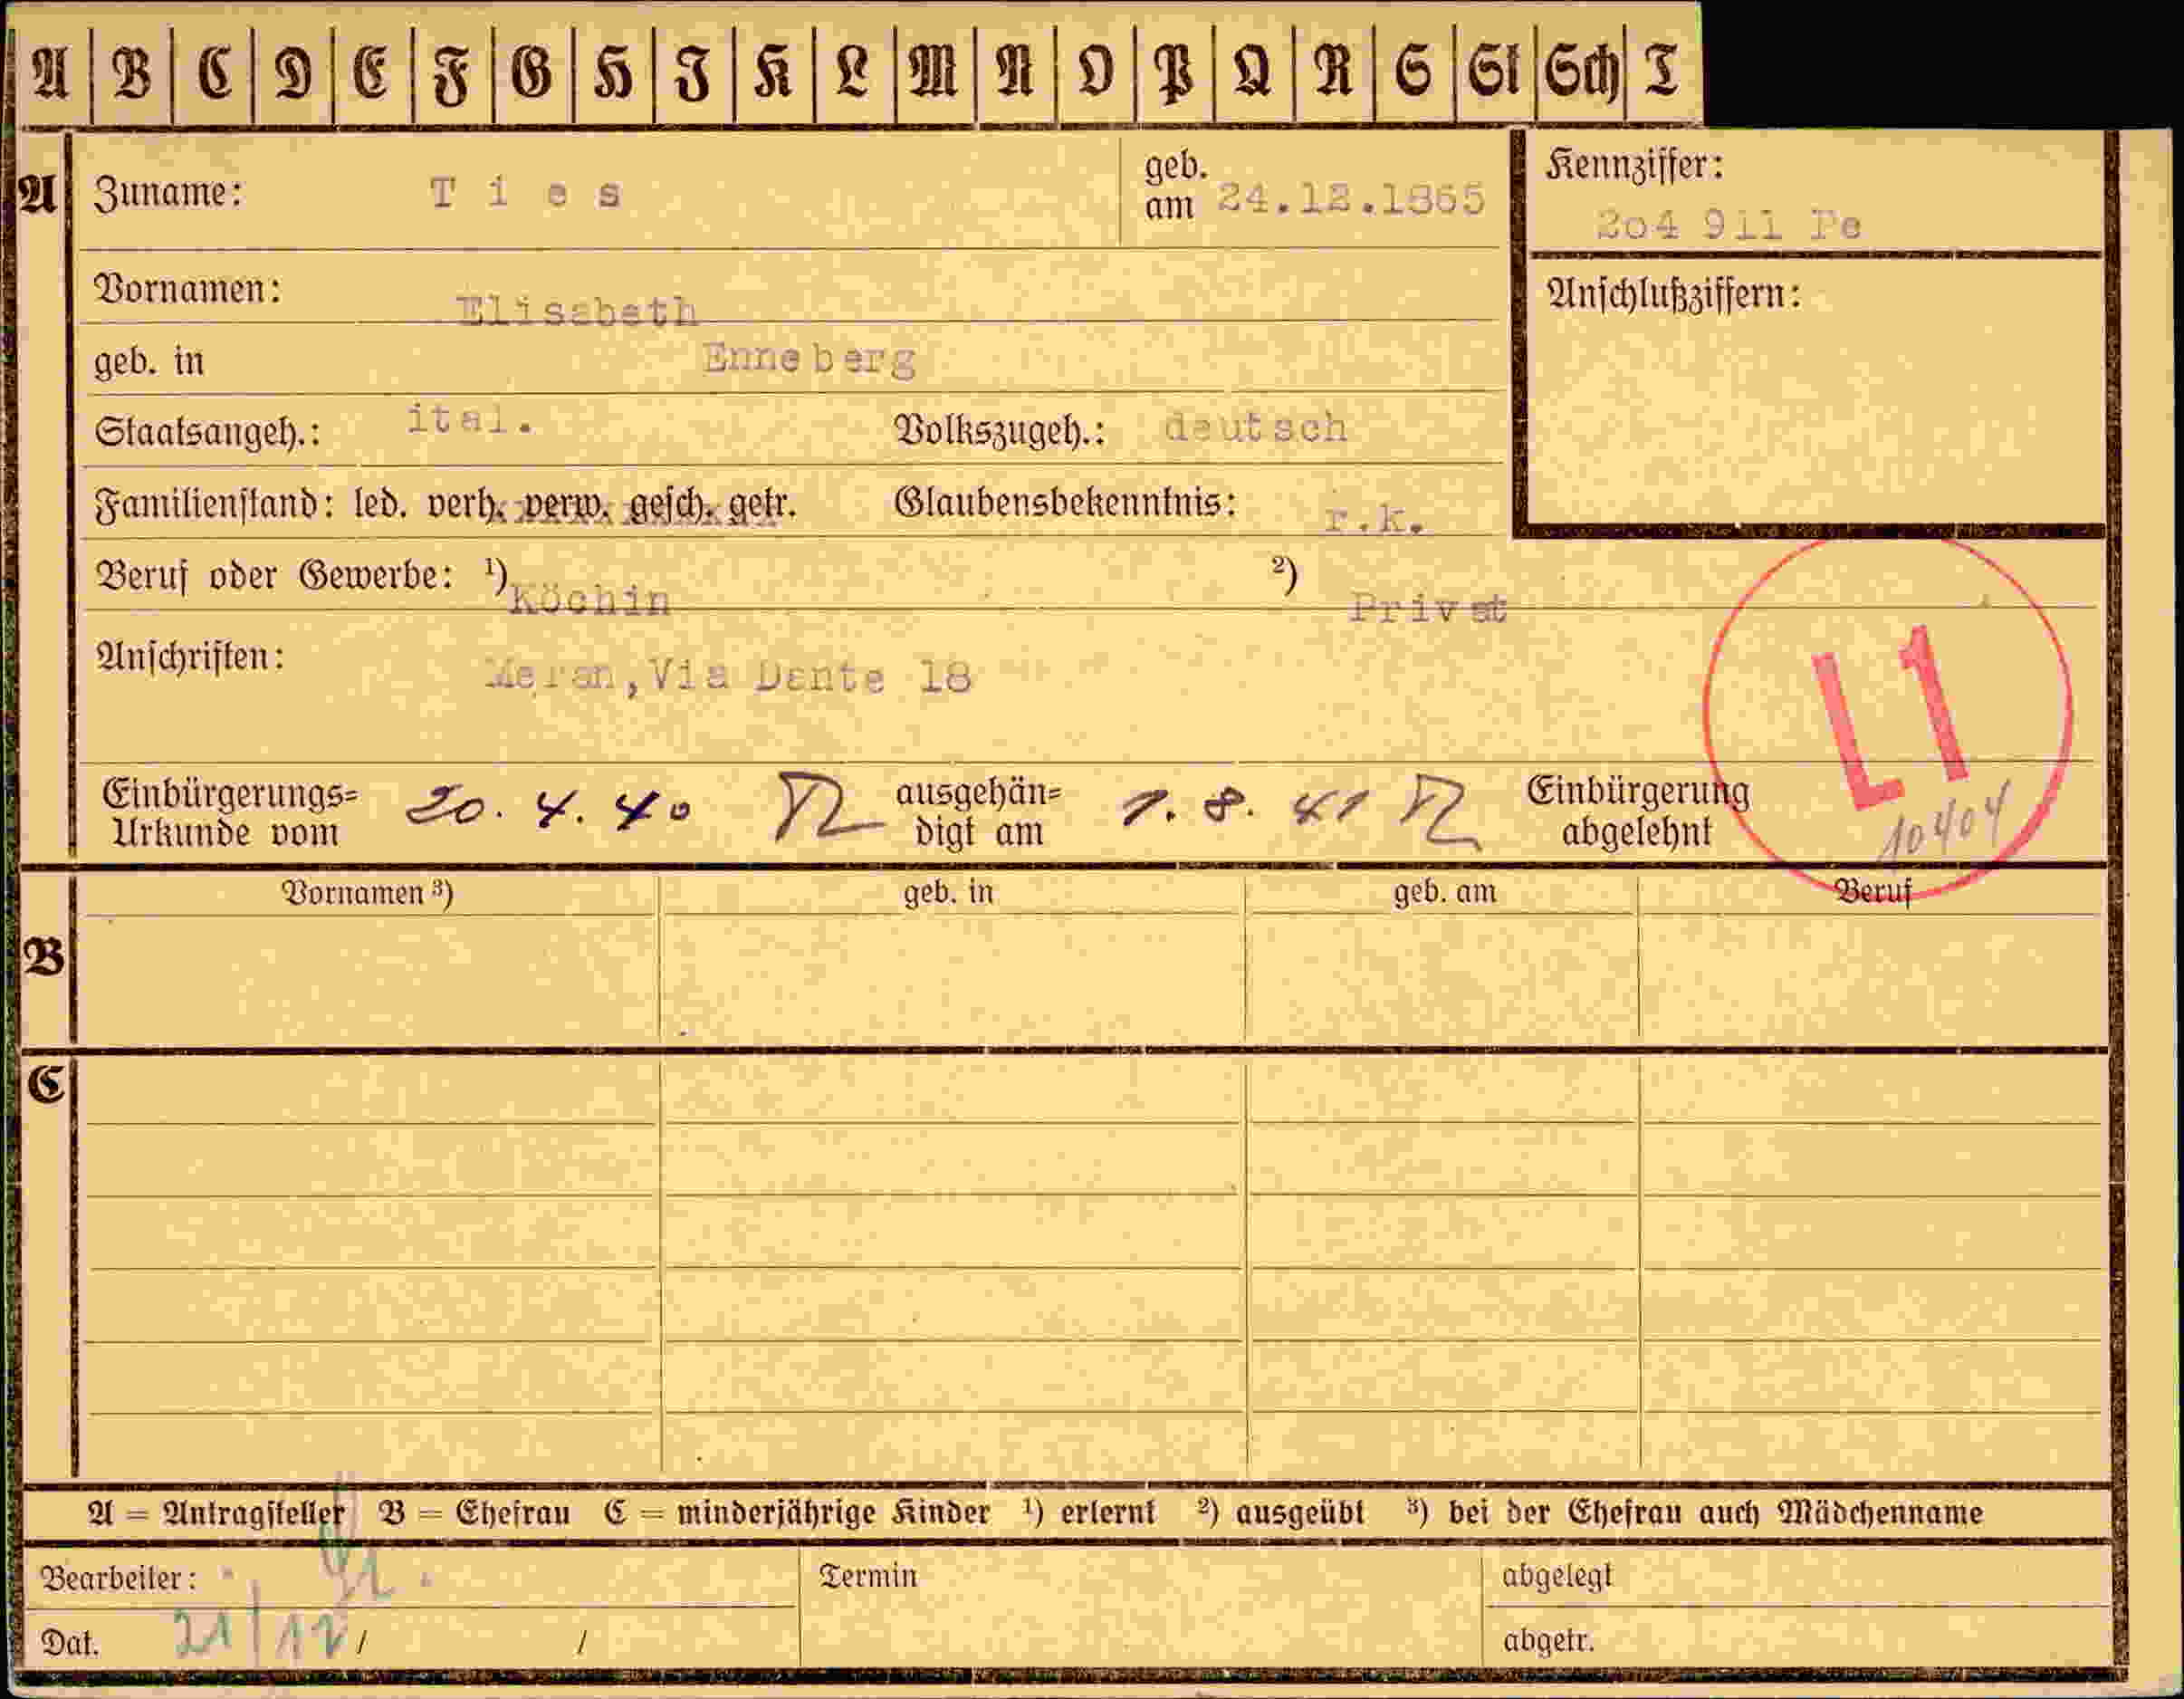 A B C D E F G H J K L M N O P Q R S St Sch T
A Zuname: Ties geb. am 24.12.1865 Kennziffer: 2o4 911 Pe
Vornamen: Elisabeth Anschlußziffern:
geb. in Enneberg
Staatsangeh.: ital. Volkszugeh.: deutsch
Familienstand: led. verh. verw. gesch. getr. Glaubensbekenntnis: r.k.
Beruf oder Gewerbe: ¹) Köchin ²) Privat
Anschriften: Meran, Via Dante 18
L1
Einbürgerungs-Urkunde vom 20. 4. 40 ausgehändigt am 1. 8. 41 Einbürgerung abgelehnt 10404
Vornamen ³) geb. in geb. am Beruf
B
C
A = Antragsteller B = Ehefrau C = minderjährige Kinder ¹) erlernt ²) ausgeübt ³) bei der Ehefrau auch Mädchenname
Bearbeiter: Termin abgelegt
Dat. 21/12 / / abgetr.